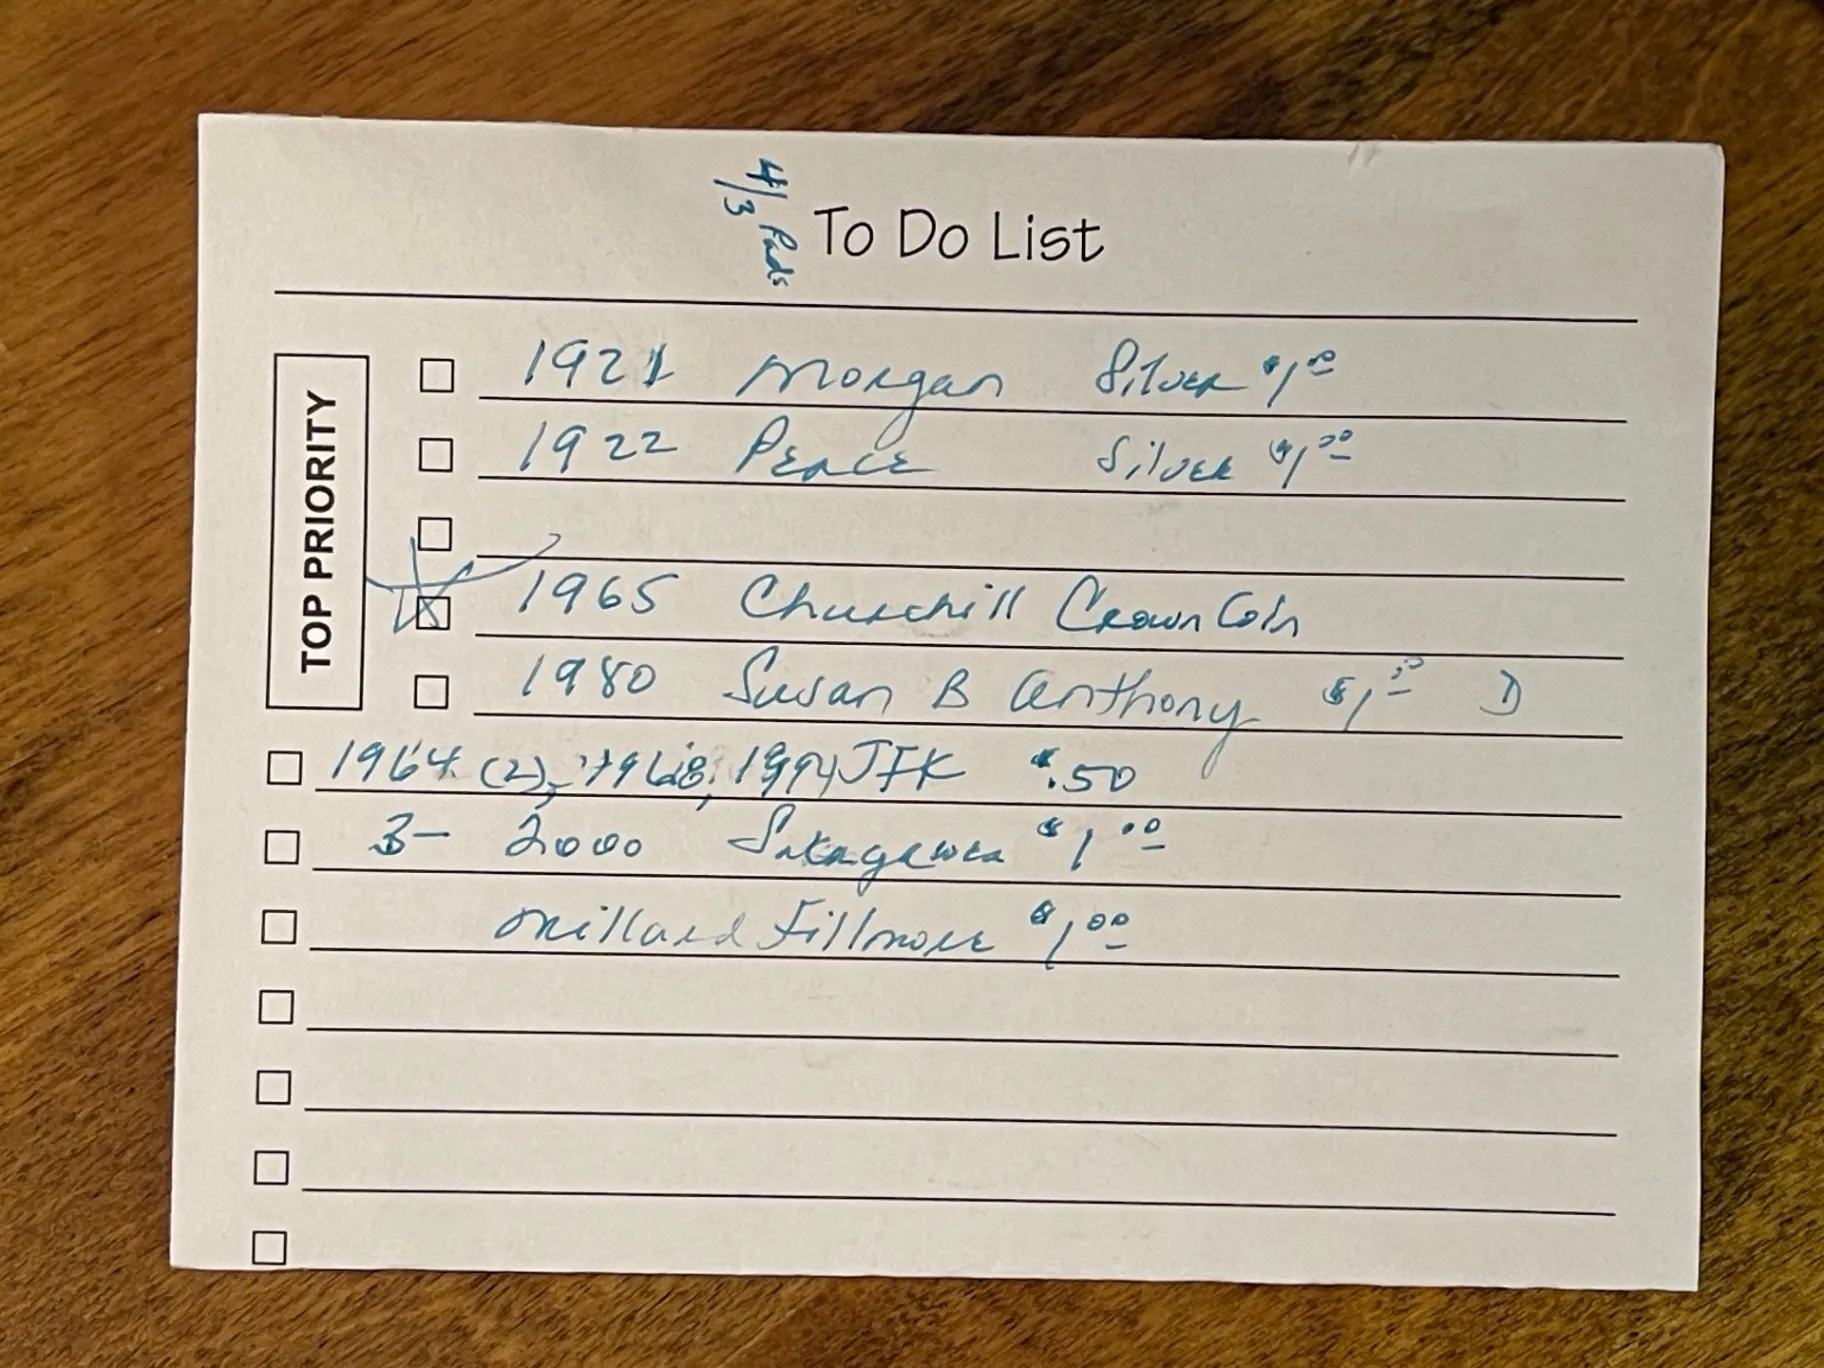 To Do List
4/3 Pads
TOP PRIORITY
1921 Morgan Silver $1.00
1922 Peace Silver $1.00
1965 Churchill Crown Coin
1980 Susan B Anthony $1.00 D
1964 (2), 1968, JFK $.50
3- 2000 Sakagawea $1.00
Millard Fillmore $1.00